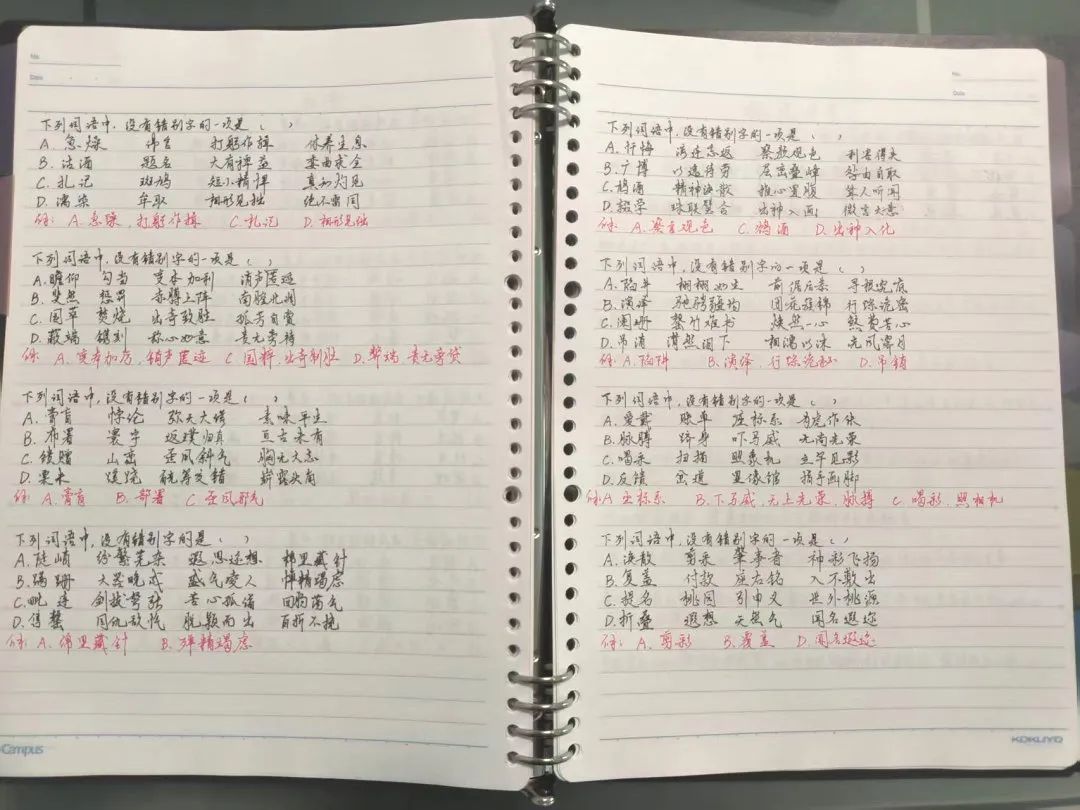 No.
Date
下列词语中，没有错别字的一项是（ ）
A. 急燥 伟言 打躬作辑 休养生息
B. 沽酒 题名 大有裨益 委曲求全
C. 扎记 斑鸠 短小精悍 真知灼见
D. 濡染 牟取 相形见拙 绝不雷同
A. 急躁，打躬作揖 C. 札记 D. 相形见绌
下列词语中，没有错别字的一项是（ ）
A. 瞻仰 勾当 变本加利 消声匿迹
B. 斐然 惩罚 赤膊上阵 南腔北调
C. 国萃 焚烧 出奇致胜 孤芳自赏
D. 蔽端 镌刻 称心如意 责无旁待
A. 变本加厉，销声匿迹 C. 国粹，出奇制胜 D. 弊端 责无旁贷
下列词语中，没有错别字的一项是（ ）
A. 膏肓 悖论 弥天大谎 素昧平生
B. 布署 寰宇 返璞归真 亘古未有
C. 馈赠 山峦 歪风斜气 胸无大志
D. 栗木 饶 觥筹交错 崭露头角
A. 膏肓 B. 部署 C. 歪风邪气
下列词语中，没有错别字的是（ ）
A. 陡峭 纷繁芜杂 遐思迩想 棉里藏针
B. 蹒跚 大器晚成 盛气凌人 惮精竭虑
C. 毗连 剑拔弩张 苦心孤诣 回肠荡气
D. 同仇敌忾 脱颖而出 百折不挠
A. 绵里藏针 B. 殚精竭虑
Campus
No.
Date
下列词语中，没有错别字的一项是（ ）
A. 忏悔 流连忘返 察颜观色 利害得失
B. 广博 以逸待劳 层峦叠嶂 咎由自取
C. 鸠酒 精神涣散 推心置腹 耸人听闻
D. 辍学 珠联璧合 出神入画 微言大意
A. 察言观色 C. 鸩酒 D. 出神入化
下列词语中，没有错别字的一项是（ ）
A. 陷井 栩栩如生 前倨后恭 寻根究底
B. 演译 驰骋疆场 团花簇锦 行综诡密
C. 阑珊 罄竹难书 焕然一心 煞费苦心
D. 吊消 潸然泪下 相濡以沫 光风霁月
A. 陷阱 B. 演绎，行踪诡秘 D. 吊销
下列词语中，没有错别字的一项是（ ）
A. 爱戴 账单 座标系 为虎作伥
B. 脉膊 跻身 吓马威 无尚光荣
C. 喝采 扫描 照象机 立竿见影
D. 反馈 岔道 录像馆 指手画脚
A. 坐标系 B. 下马威，无上光荣，脉搏 C. 喝彩，照相机
下列词语中，没有错别字的一项是（ ）
A. 涣散 剪采 肇事者 神彩飞扬
B. 复盖 付款 座右铭 入不敷出
C. 提名 桃园 引申义 世外桃源
D. 折叠 遐想 天然气 闻名遐迩
A. 剪彩 B. 覆盖 D. 闻名遐迩
KOKUYO